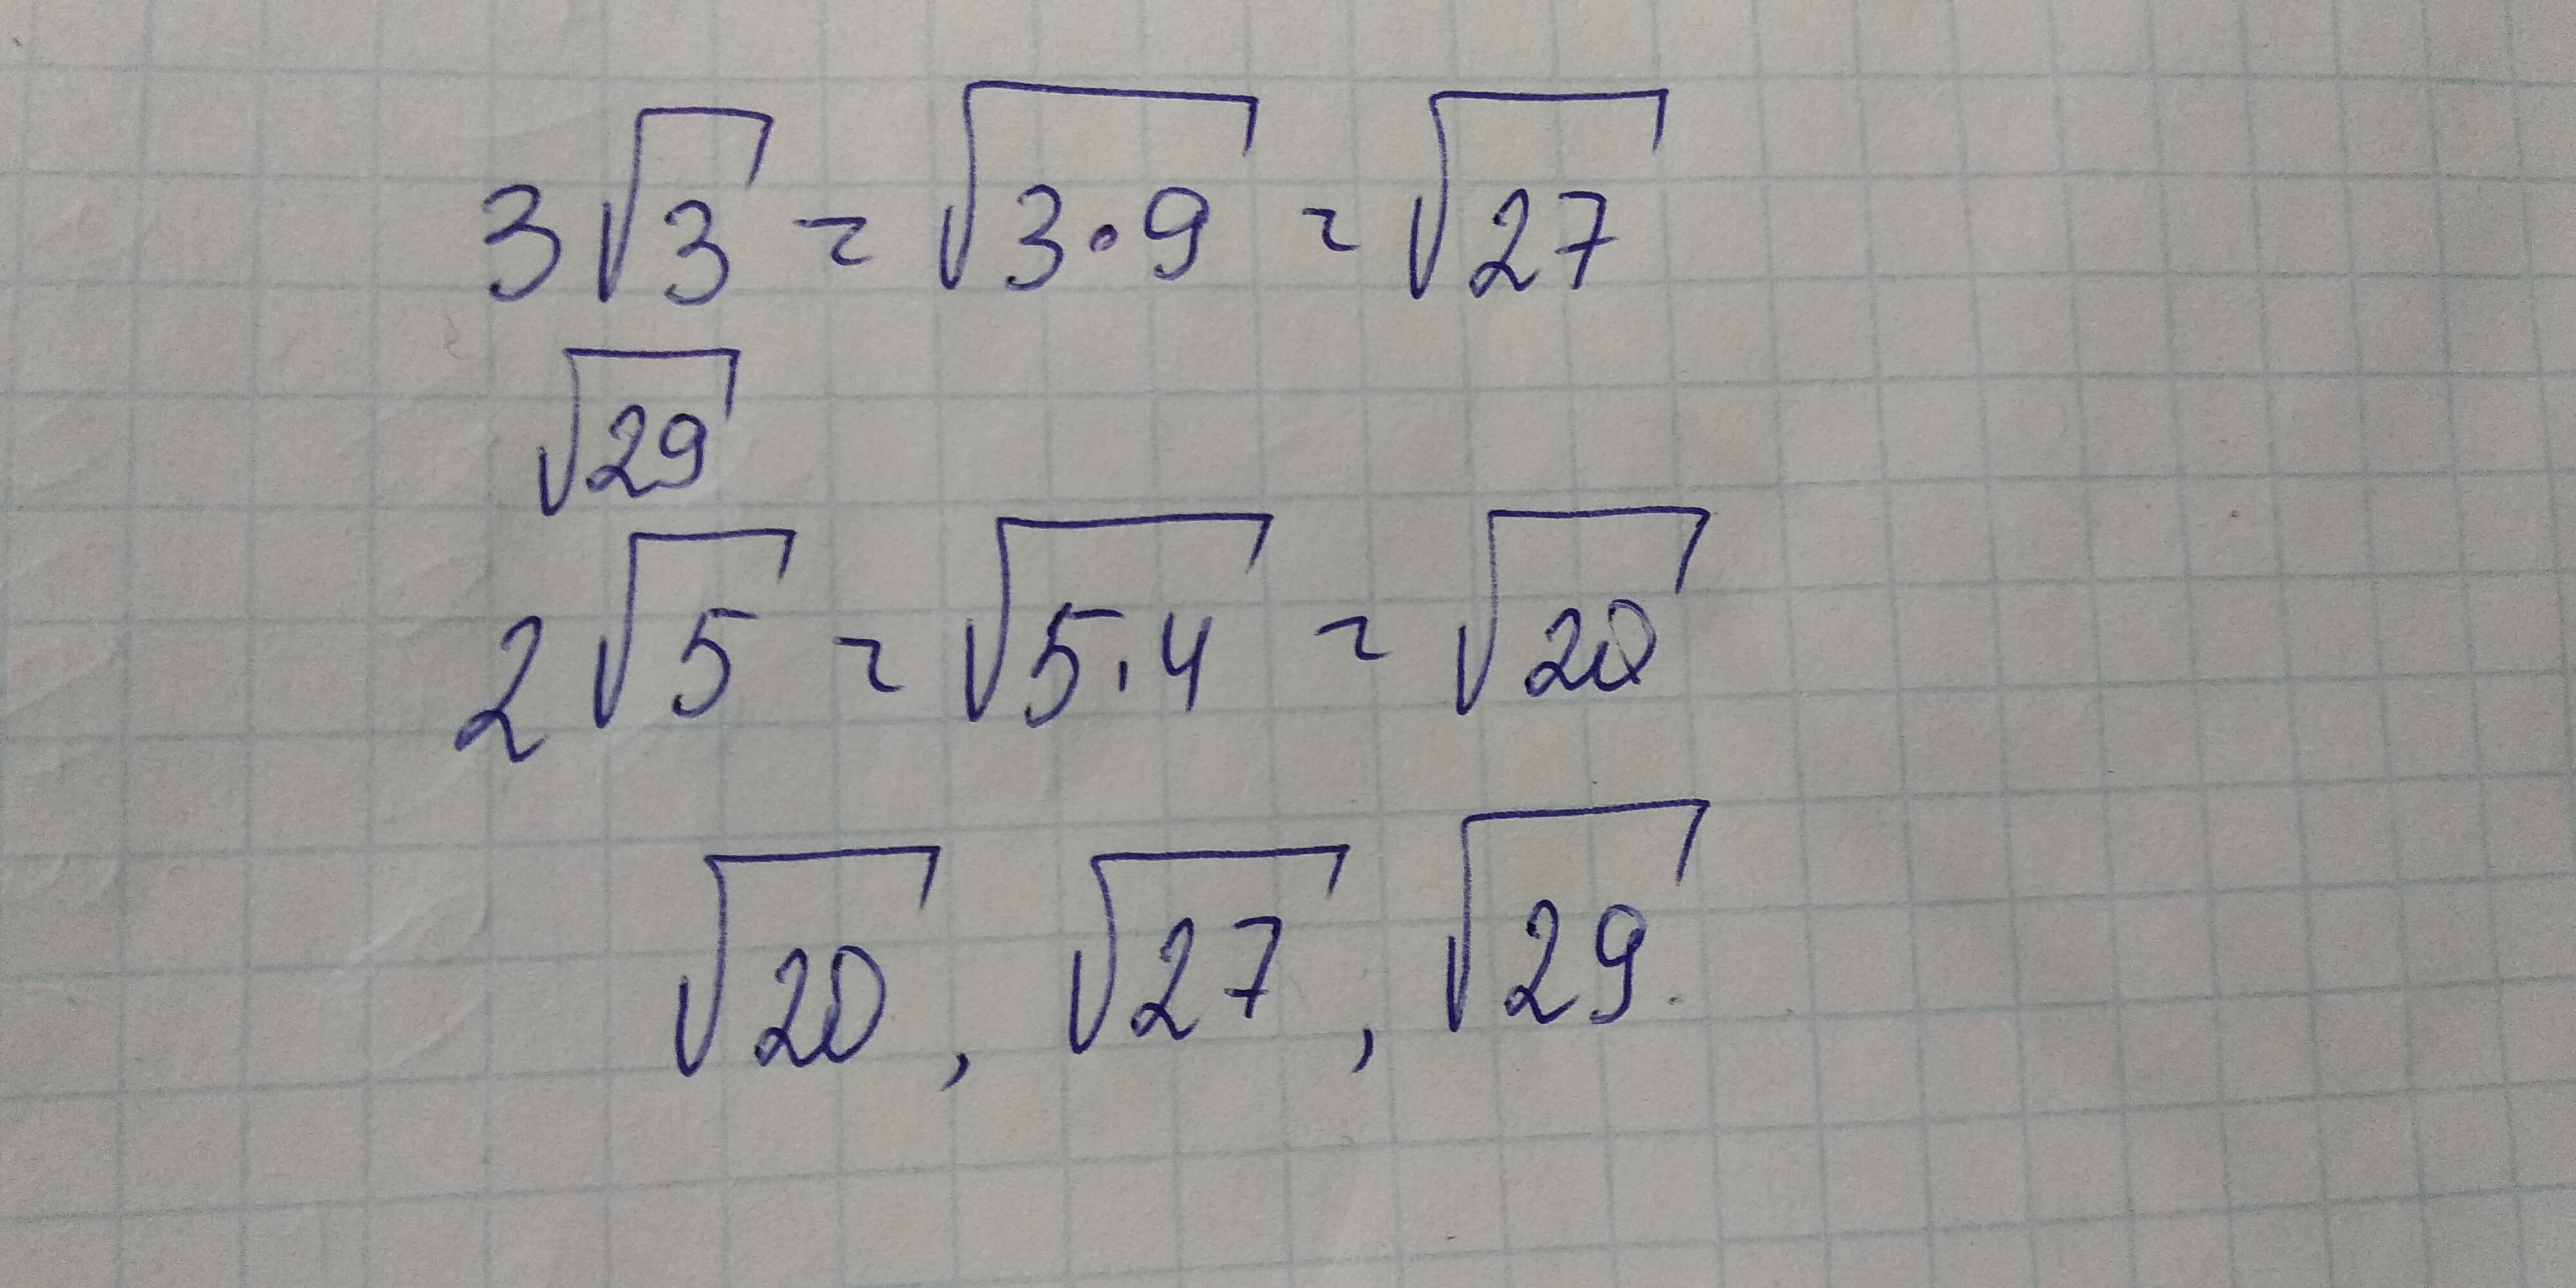 3√3 = √3·9 = √27
√29
2√5 = √5·4 = √20
√20, √27, √29.